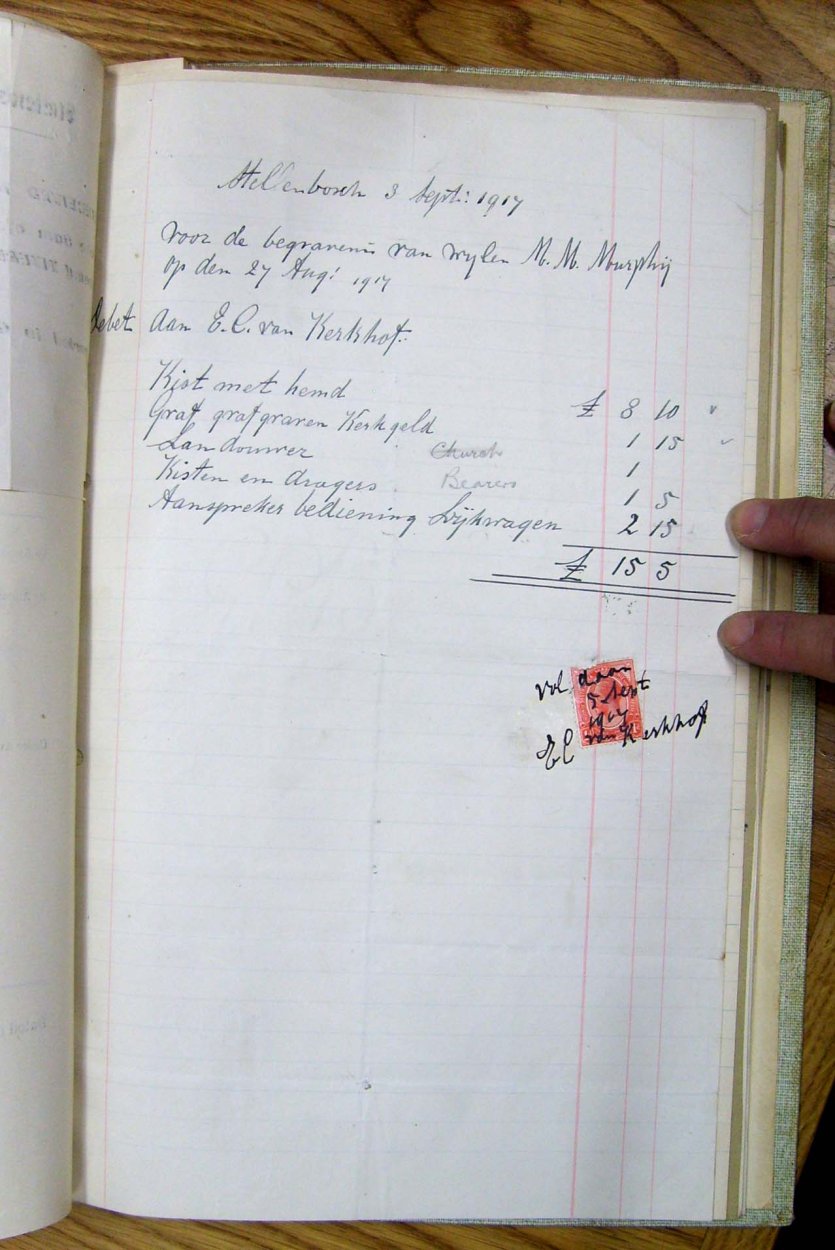 Stellenbosch 3 Sept: 1917
Voor de begravenis van wylen M. M. Murphy
op den 27 Aug: 1917
Debet aan E. C. van Kerkhof.
Kist met hemd £ 8 10 "
Graf grafgraven Kerkgeld 1 15 "
Landouwer Church 1
Kisten en dragers Bearers 1 5
Aanspreker bediening Lijkwagen 2 15
£ 15 5
vol daan
5 Sept
1917
E C van Kerkhof